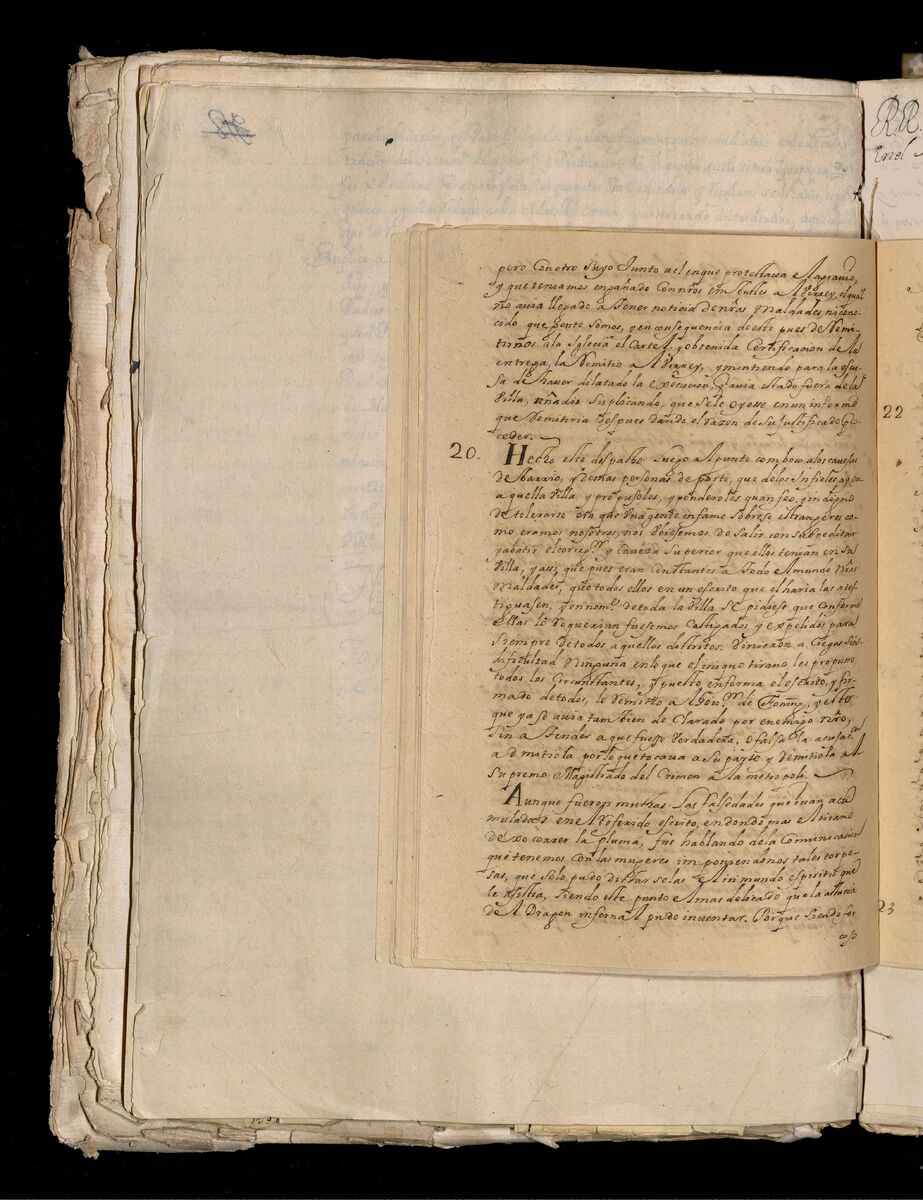 pero con otro suyo junto a el en que protestava el agravio,
y que teniamos engañado con nros embustes a el Virrey, el qual
no avia llegado a tener noticia de nras maldades, ni cono-
cido que gente somos, y en consequencia de esto pues Remi-
tirnos a la Iglesia el Cartel, y obtenida Certificacion de la
entrega, la Remitio a el Virrey, y mintiendo para la escu-
sa de haver dilatado la execucion, q avia estado fuera de la
Villa, añadio suplicando, que se le oyesse en un informe
que Remitiria despues dando el Razon de su justificado pro
ceder.
20. Hecho este despacho luego al punto comboco a los cavesas
de Barrio, y demas personas de porte, que de los Infieles ay en
aquella Villa, y propusoles, y ponderoles quan feo, y indigno
de tolerarse era que una gente infame sobre ser estrangeros co-
mo eramos nosotros, nos
y abatir el correg.r y Caveza superior que ellos tenian en su
Villa, y assi, que pues eran constantes a todo el mundo nras
maldades, que todos ellos en un escrito que el haria las ates-
tiguasen, y en nom.e de toda la Villa se pidiese que conforme
ellas lo Requerian fuesemos castigados, y expelidos para
siempre de todos aquellos distritos. Vinieron a ciegas sin
dificultad ninguna en lo que el iniquo tirano les propuso
todos los circunstantes, y puesto en forma el escrito, y fir-
mado de todos, lo Remitio a el de y este
que ya se avia tambien declarado por enemigo nro,
sin atender a que fuesse verdadera, o falsa la acusac.on
admitiola por lo que tocava a su parte y Remitiola al
supremo Magistrado del Crimen a la metropoli.
Aunque fueron muchas las falsedades que ivan acu
muladas en el Referido escrito, en donde mas el tirano
dexo correr la pluma, fue hablando de la comunicacion
que tenemos con las mugeres imponiendonos tales torpe-
sas, que solo pudo dictarselas el inmundo espiritu que
le asistia, siendo este punto el mas delicado que la astucia
de el Dragon infernal pudo inventar. Porque siendo for
22
23
RR
en el